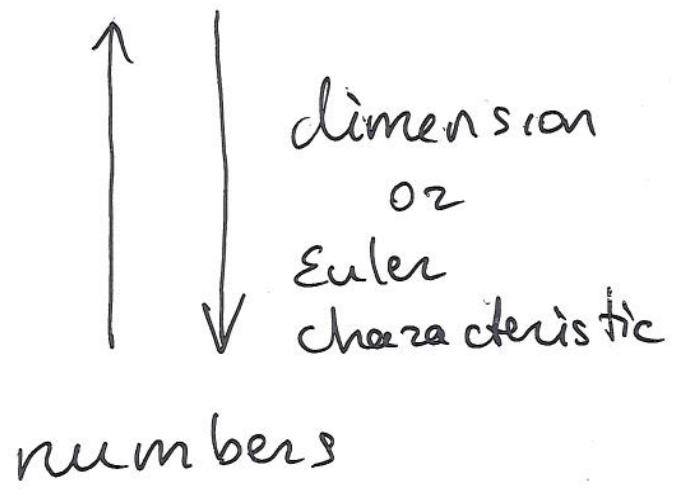 dimension
or
Euler
characteristic
numbers